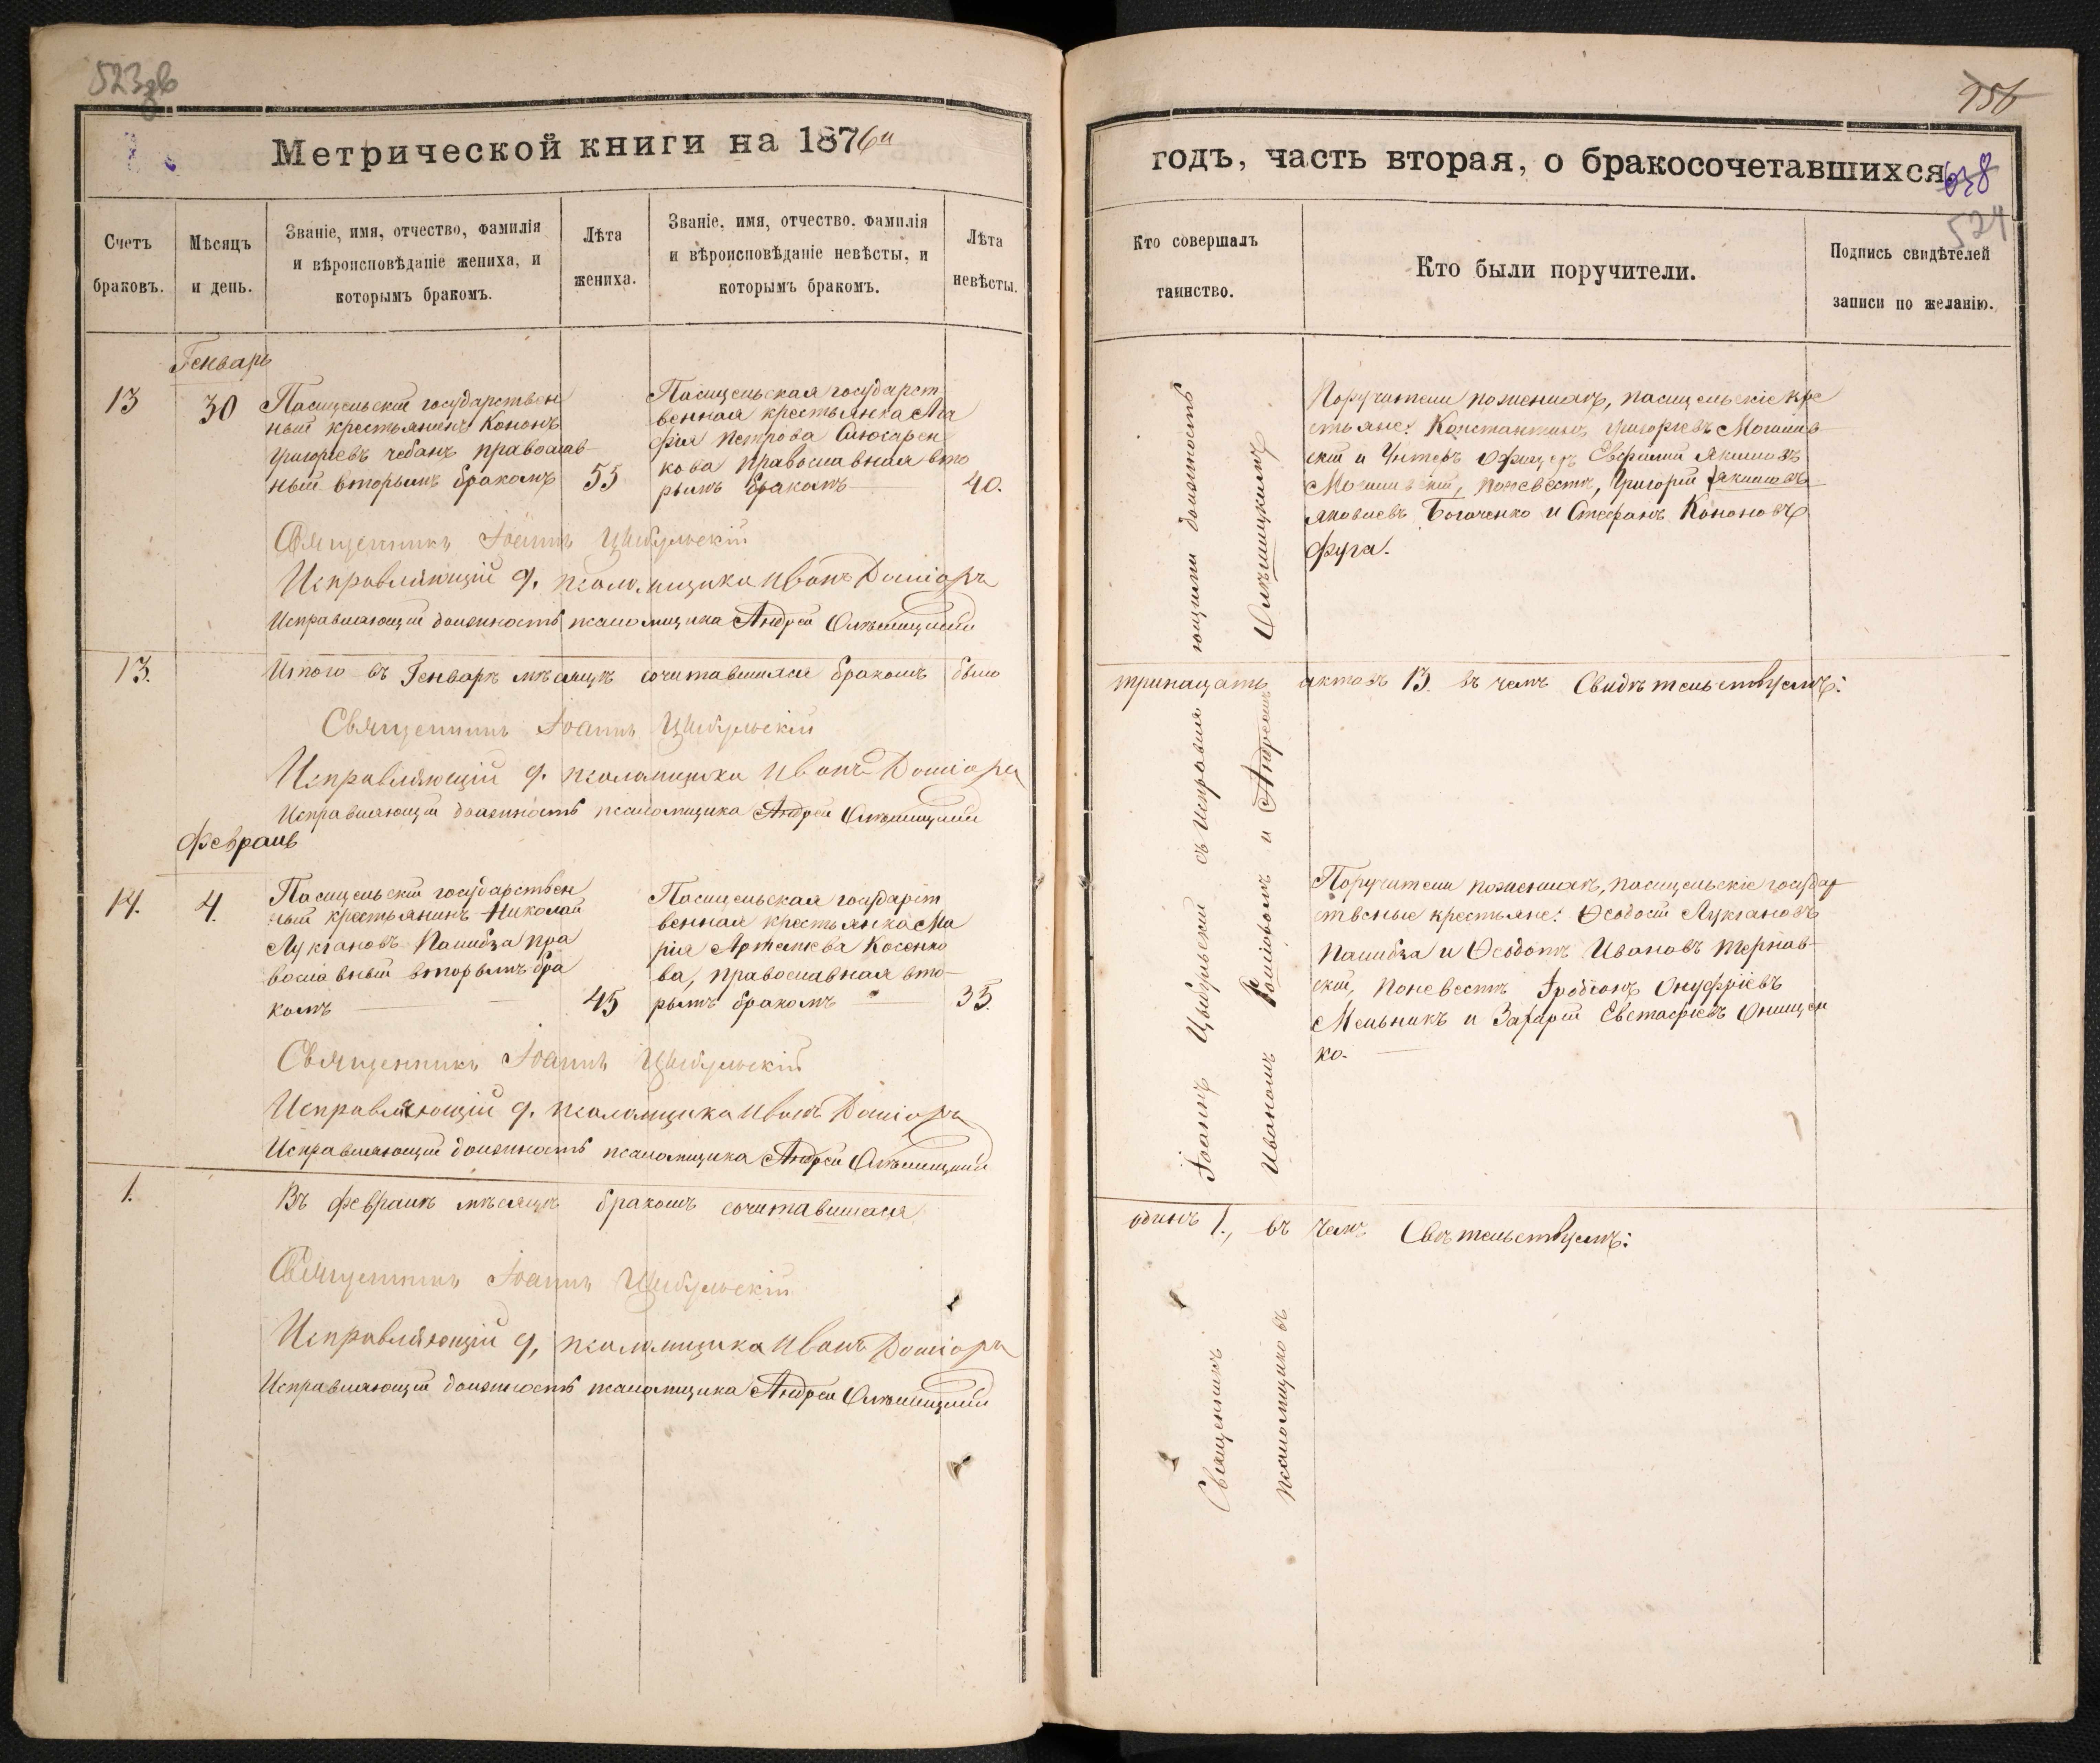 523 зв
Метрической книги на 1876й
Счетъ
браковъ.
Мѣсяцъ
и день.
Званіе, имя, отчество, фамилія
и вѣроисповѣданіе жениха, и
которымъ бракомъ.
Лѣта
жениха.
Званіе, имя, отчество, фамилія
и вѣроисповѣданіе невѣсты, и
которымъ бракомъ.
Лѣта
невѣсты.
Генварь
13
30
Пасицельскій государствен
ный крестьянинъ Кононъ
Григорьевъ Чебанъ православ-
ный вторымъ бракомъ
55
Пасицельская государст
венная крестьянка Ага
фія Петрова Слюсарен
кова православная вто
рымъ бракомъ
40.
Священникъ Іоаннъ Цибульскій
Исправляющій д. псаломщика Иванъ
Исправляющій должность псаломщика Андрей
13.
Итого въ Генварѣ мѣсяцѣ сочитавшихся бракомъ было
Священникъ Іоаннъ Цибульскій
Исправляющій д. псаломщика Иванъ
Исправляющій должность псаломщика Андрей
Февраль
14.
4.
Пасицельскій государствен
ный крестьянинъ Николай
Лукіановъ Палибза пра
вославный вторымъ бра
комъ
45
Пасицельская государст
венная крестьянка Ма
рія Артемьева Косенко
ва, православная вто-
рымъ бракомъ
35.
Священникъ Іоаннъ Цибульскій
Исправляющій д. псаломщика Иванъ
Исправляющій должность псаломщика Андрей
1.
Въ Февралѣ мѣсяцѣ бракомъ сочитавшихся
Священникъ Іоаннъ Цибульскій
Исправляющій д. псаломщика Иванъ
Исправляющій должность псаломщика Андрей
756
годъ, часть вторая, о бракосочетавшихся.
638
524
Кто совершалъ
таинство.
Кто были поручители.
Подпись свидѣтелей
записи по желанію.
Священникъ Іоаннъ Цыбульскій съ исправля ющими должность
псаломщиковъ Иваномъ и Андреемъ
Поручители по женихѣ, пасицельскіе кре
стьяне: Константинъ Григорьевъ Могилев-
скій и Унтеръ Офицеръ Ефремій Якимовъ
Могилевскій, по невестѣ, Григорій Якимовъ
Яковлевъ Богаченко и Стефанъ Кононовъ
Фуга.
тринацать актовъ 13. въ чемъ Свидѣтельствуемъ:
Поручители по женихѣ, пасицельскіе государ
ственые крестьяне: Ѳеодосій Лукіановъ
Палибза и Ѳеодотъ Ивановъ Тернав-
скій, по невестѣ Іродіонъ Онуфріевъ
Мельникъ и Захарій Евстафіевъ Онищен
ко.
одинъ 1., въ чемъ Свѣтельствуемъ: